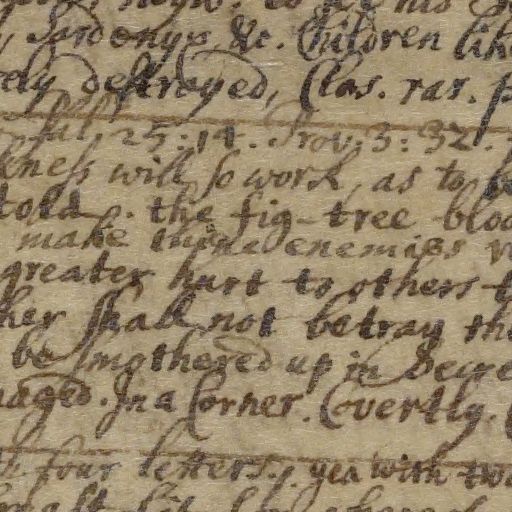 his
, Sardonyx &c. Children lik
ely destroyed, Clas. rar. p
Psal. 25:14. Prov. 3:32.
kness will so work, as to be
told. the fig-tree bloo
make thine enemies
greater hurt to others t
her shall not betray th
be smothered up in Secre
naged. In a Corner. Covertly. C
four letters, yea with two